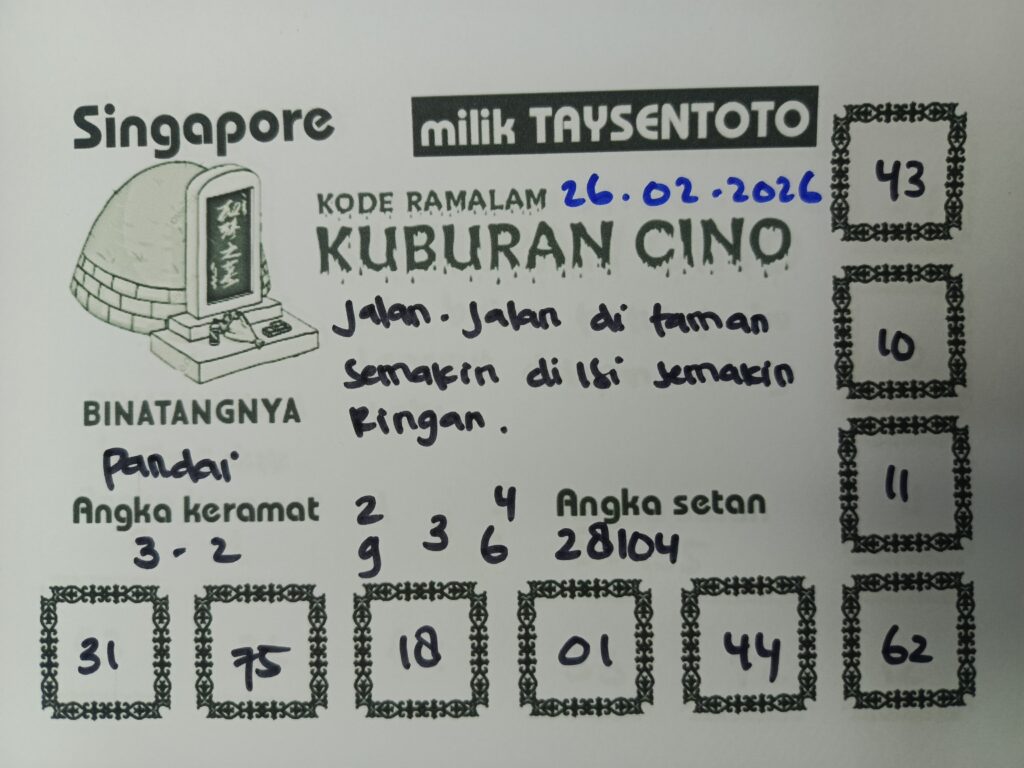 Singapore
milik TAYSENTOTO
KODE RAMALAM 26.02.2026
KUBURAN CINO
Jalan. Jalan di taman
Semakin di isi semakin
Ringan.
BINATANGNYA
Pandai
Angka keramat
3 - 2
2 4
3
9 6
Angka setan
28104
43
10
11
31 75 18 01 44 62